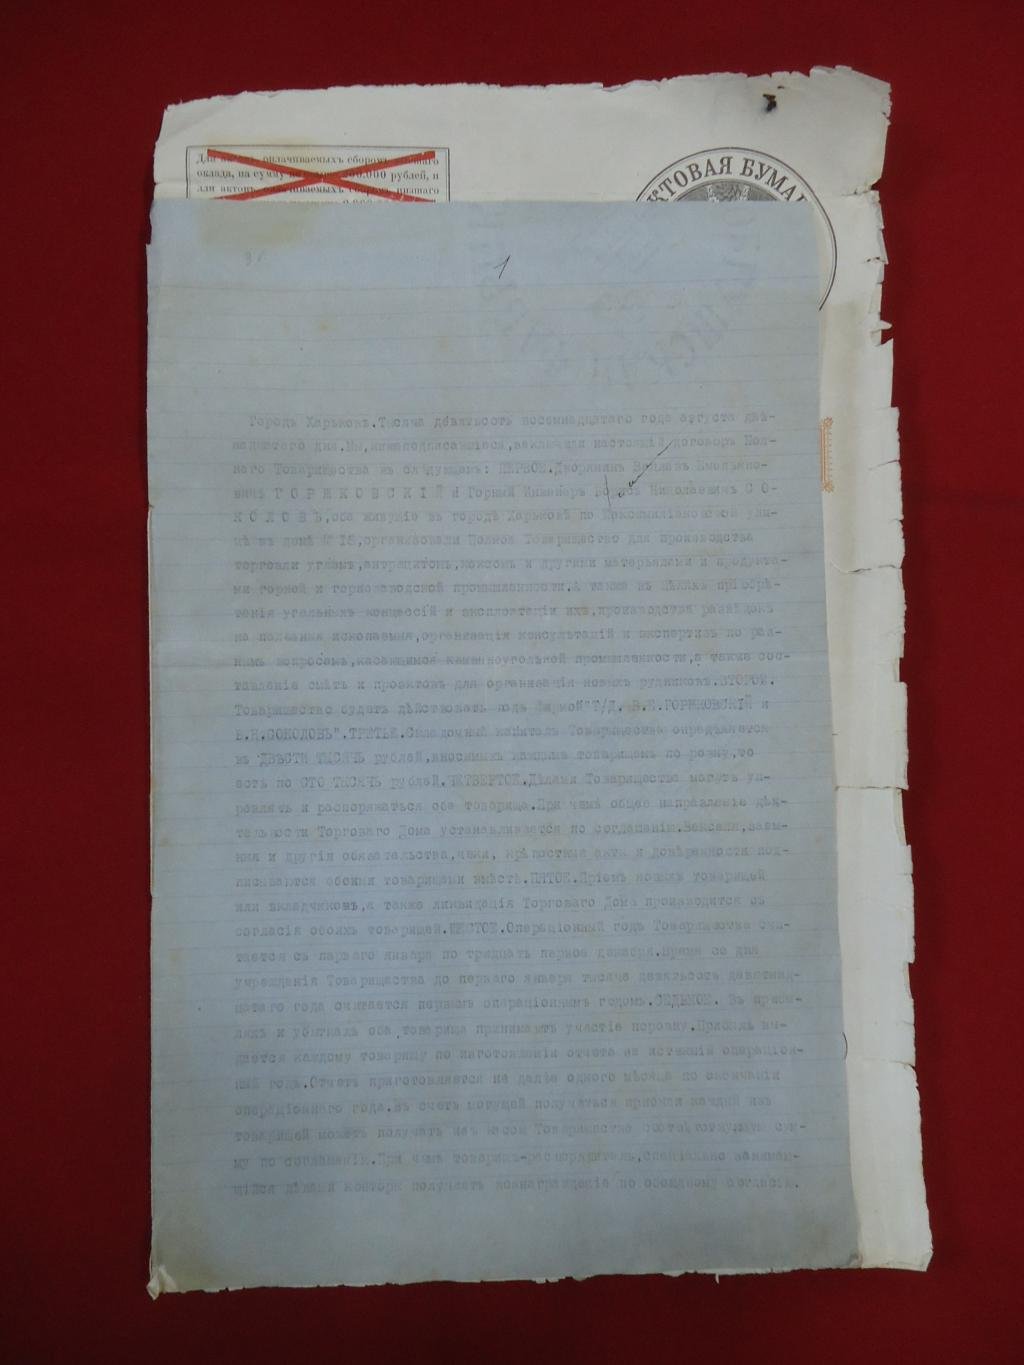 Для актовъ, оплачиваемыхъ сборомъ
оклада, на сумму 300.000 рублей, и
для актовъ, оплачиваемыхъ сборомъ низшаго
АКТОВАЯ БУМАГА
1
Городъ Харьковъ. Тысяча девятьсотъ восемнадцатаго года августа двѣ-
надцатаго дня. Мы, нижеподписавшіеся, заключили настоящій договоръ Пол-
наго Товарищества въ слѣдующемъ: ПЕРВОЕ. Дворянинъ Вацлавъ Емельяно-
вичъ ГОРЖКОВСКІЙ и Горный Инженеръ Борисъ Николаевичъ СО-
КОЛОВЪ, оба живущіе въ городѣ Харьковѣ по Максимиліановской ули-
цѣ въ домѣ № 18, организовали Полное Товарищество для производства
торговли углемъ, антрацитомъ, коксомъ и другими матерьялами и продукта-
ми горной и горнозаводской промышленности. А также въ цѣляхъ пріобрѣ-
тенія угольныхъ концессій и эксплоатаціи ихъ, производства развѣдокъ
на полезныя ископаемыя, организація консультацій и экспертизъ по раз-
нымъ вопросамъ, касающимся каменноугольной промышленности, а также сос-
тавленіе смѣтъ и проэктовъ для организаціи новыхъ рудниковъ. ВТОРОЕ.
Товарищество будетъ дѣйствовать подъ фирмой "Т/Д. В.Е. ГОРЖКОВСКІЙ и
Б.Н. СОКОЛОВЪ". ТРЕТЬЕ. Складочный капиталъ Товарищества опредѣляется
въ ДВѢСТИ ТЫСЯЧЪ рублей, вносимыхъ каждымъ товарищемъ по ровну, то
есть по СТО ТЫСЯЧЪ рублей. ЧЕТВЕРТОЕ. Дѣлами Товарищества могутъ уп-
равлять и распоряжаться оба товарища. При чемъ общее направленіе дѣя-
тельности Торговаго Дома устанавливается по соглашенію. Векселя, заем-
ныя и другія обязательства, чеки, крѣпостные акты и довѣренности под-
писываются обоими товарищами вмѣстѣ. ПЯТОЕ. Пріемъ новыхъ товарищей
или вкладчиковъ, а также ликвидація Торговаго Дома производится съ
согласія обоихъ товарищей. ШЕСТОЕ. Операціонный годъ Товарищества счи-
тается съ перваго января по тридцать первое декабря. Время со дня
учрежденія Товарищества до перваго января тысяча девятьсотъ девятнад-
цатаго года считается первымъ операціоннымъ годомъ. СЕДЬМОЕ. Въ прибы-
ляхъ и убыткахъ оба товарища принимаютъ участіе поровну. Прибыль вы-
дается каждому товарищу по изготовленіи отчета за истекшій операціон-
ный годъ. Отчетъ приготовляется не далѣе одного мѣсяца по окончаніи
операціоннаго года. Въ счетъ могущей получаться прибыли каждый изъ
товарищей можетъ получать изъ кассы Товарищества соотвѣтствующую сум-
му по соглашенію. При чемъ товарищъ-распорядитель, спеціально занимаю-
щійся дѣлами конторы получаетъ вознагражденіе по обоюдному согласію.